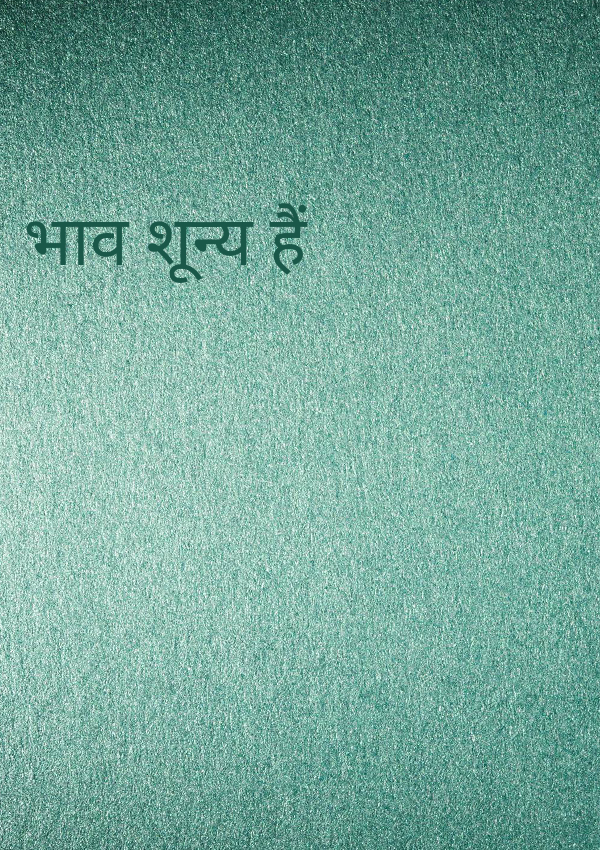 भाव शून्य हैं